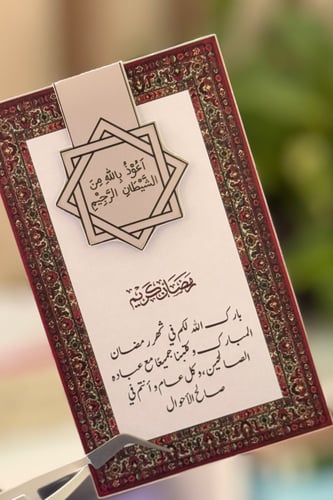 أعوذ بالله من
الشيطان الرجيم
رمضان كريم
بارك الله لكم في شهر رمضان
المبارك وكتبنا جميعا مع عباده
الصالحين، وكل عام وأنتم في
صالح الأحوال